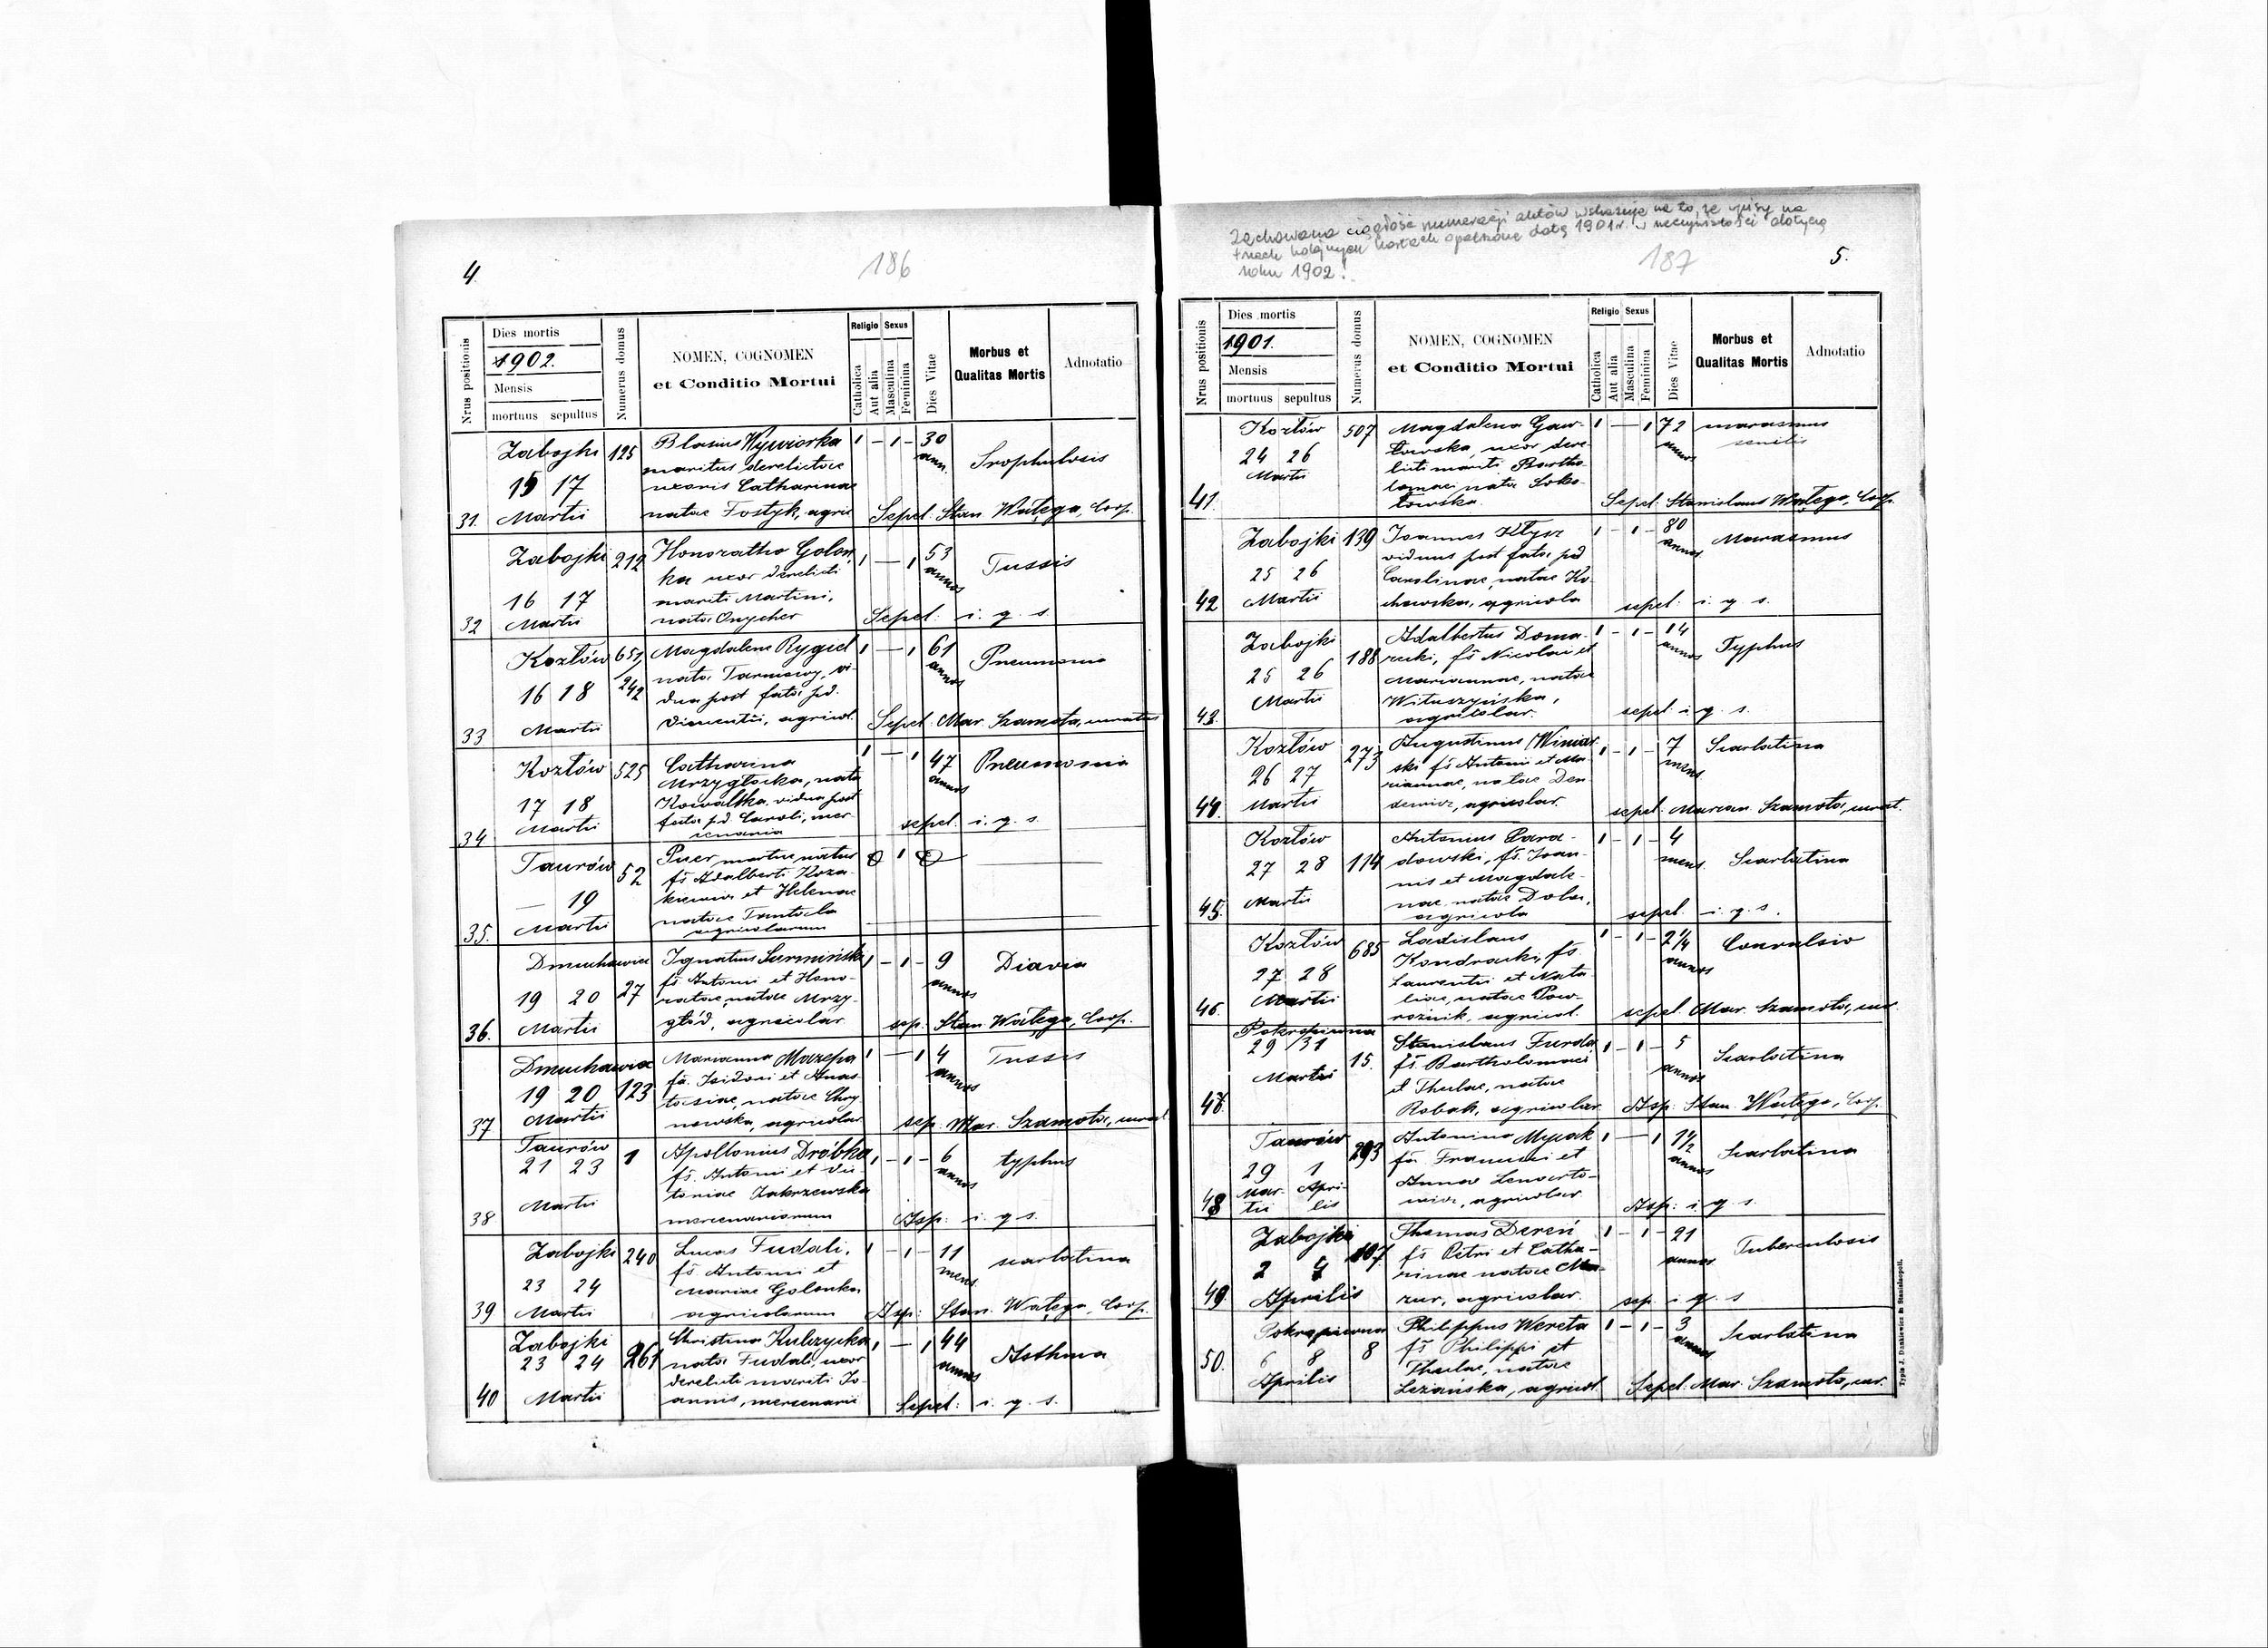 4.
186
Nrus positionis
Dies mortis
1902.
Mensis
mortuus sepultus
Numerus domus
NOMEN, COGNOMEN
et Conditio Mortui
Religio
Sexus
Catholica
Aut alia
Masculina
Feminina
Dies Vitae
Morbus et
Qualitas Mortis
Adnotatio
31. Zabojki 15 17 Martii 125
Blasius Wywiorka
maritus derelictae
uxoris Catharinae
natae Fostyk, agric
1 – 1 – 30 ann.
Srophulosis
Sepel. Stan. Wałęga, Coop.
32 Zabojki 16 17 Martii 212
Honoratha Golon
ka uxor derelicti
mariti Martini,
nata Onycher
1 — 1 53 annos
Tussis
Sepel: i. q. s.
33 Kozłów 16 18 Martii 651/242
Magdalena Rygiel
nata Tarnawy, vi-
dua post fata pd.
Vicentii, agricol.
1 — 1 61 annos
Pneumonia
Sepel. Mar. Szamota, curatus
34 Kozłów 17 18 Martii 525
Catharina
Mrzygłocka, nata
Kowalska, vidua post
fata pd Caroli, mer-
cenaria
1 — 1 47 annos
Pneumonia
sepel. i. q. s.
35. Taurów — 19 Martii 52
Puer mortue natus
fs Adalberti Koza-
kiewicz et Helenae
natae Tantola
agricolarum
36. Dmuchawiec 19 20 Martii 27
Ignatius Surmiński
fs Antoni et Hono-
ratae, natae Mrzy-
głód, agricolar.
1 – 1 – 9 annos
Diaria
sep. Stan. Wałęga, Coop.
37 Dmuchawiec 19 20 Martii 123
Marianna Mazepa
fa. Isidori et Anas-
tasiae, natae Chry
nowska, agricolar
1 — 1 4 annos
Tussis
sep. Mar. Szamota, curat
38 Taurów 21 23 Martii 1
Apollonius Dróbka
fs. Antoni et Vic-
toriae Zakrzewska
mercenariorum
1 – 1 – 6 annos
typhus
Asp: i. q. s.
39 Zabojki 23 24 Martii 240
Lucas Fudali,
fs Antoni et
Mariae Golonka
agricolarum
1 – 1 – 11 mens.
scarlatina
Asp: Stan. Wałęga, Coop.
40 Zabojki 23 24 Martii 261
Christina Kulczycka
nata Fudali, uxor
derelicti mariti Jo-
annis, mercenarii
1 — 1 44 annos
Asthma
Sepel: i. q. s.
Zachowana ciągłość numeracji aktów wskazuje na to, że wpisy na
trzech kolejnych kartach opatrzone datą 1901 r. w rzeczywistości dotyczą
roku 1902!
187
5.
Nrus positionis
Dies mortis
1901.
Mensis
mortuus sepultus
Numerus domus
NOMEN, COGNOMEN
et Conditio Mortui
Religio
Sexus
Catholica
Aut alia
Masculina
Feminina
Dies Vitae
Morbus et
Qualitas Mortis
Adnotatio
41. Kozłów 24 26 Martii 507
Magdalena Gaw-
łowska, uxor dere-
licti mariti Bartho-
lomaei nata Soko-
łowska
1 — 1 72 annos
marasmus
senilis
Sepel: Stanislaus Wałęga, Coop.
42 Zabojki 25 26 Martii 139
Joannes Kłysz
viduus post fata pd
Carolinae, natae Ko-
chowska, agricola
1 – 1 – 80 annos
Marasmus
sepel: i. q. s.
43. Zabojki 25 26 Martii 188
Adalbertus Doma-
racki, fs Nicolai et
Mariannae, natae
Wituszyńska,
agricolar.
1 – 1 – 14 annos
Typhus
sepel. i. q. s.
44. Kozłów 26 27 Martii 273
Augustinus Winiar
ski fs Antoni et Ma-
riannae, natae Den
dewicz, agricolar.
1 – 1 – 7 mens
Scarlatina
sepel. Marian. Szamota, curat.
45. Kozłów 27 28 Martii 114
Antonius Para-
dowski, fs. Joan-
nis et Magdale-
nae, natae Doba,
agricola
1 – 1 – 4 mens
Scarlatina
sepel. i. q. s.
46. Kozłów 27 28 Martii 685
Ladislaus
Kondracki, fs
Laurentii et Nata-
liae, natae Pow-
roźnik, agricol.
1 – 1 – 2 1/4 annos
Convulsio
sepel. Mar. Szamota, cur.
47. Pokropiwna 29 31 Martii 15.
Stanislaus Furda
fs. Bartholomaei
et Theclae, natae
Robak, agricolar.
1 – 1 – 5 annos
Scarlatina
Asp: Stan. Wałęga, Coop.
48 Taurów 29 1 Mar- tii Apri- lis 293
Antonina Mysak
fa. Francisci et
Annae Lenarto-
wicz, agricolar.
1 — 1 1 1/2 annos
Scarlatina
Asp: i. q. s.
49. Zabojki 2 4 Aprilis 107
Thomas Dereń
fs Petri et Catha-
rinae natae Ma-
zur, agricolar.
1 – 1 – 21 annos
Tuberculosis
sep. i. q. s
50. Pokropiwna 6 8 Aprilis 8
Philippus Wereta
fs Philippi et
Theclae, natae
Leżańska, agricol.
1 – 1 – 3 annos
Scarlatina
Sepel. Mar. Szamota, cur.
Typis J. Dankiewicz in Stanislaopoli.